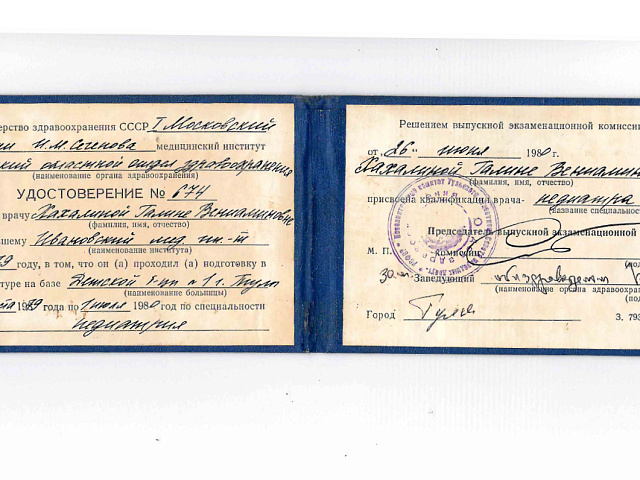 ерство здравоохранения СССР I Московский
им И.М. Сеченова медицинский институт
кий областной отдел здравоохранения
(наименование органа здравоохранения)
УДОСТОВЕРЕНИЕ № 674
врачу Кахалиной Галине Вениаминовне
(фамилия, имя, отчество)
шему Ивановский мед. ин-т
(наименование института)
9 году, в том, что он (а) проходил (а) подготовку в
туре на базе Детской б-цы №1 г. Тулы
(наименование больницы)
1979 года по 1 июля 1980 года по специальности
педиатрия
Решением выпускной экзаменационной комисси
от „26" июня 1980 г.
Кахалиной Галине Вениамино
(фамилия, имя, отчество)
присвоена квалификация врача- педиатра
(название специально
Председатель выпускной экзаменационной
М. П. Комиссии
Зав. Заведующий
(наименование органа здравоохран
Город Тула
З. 793